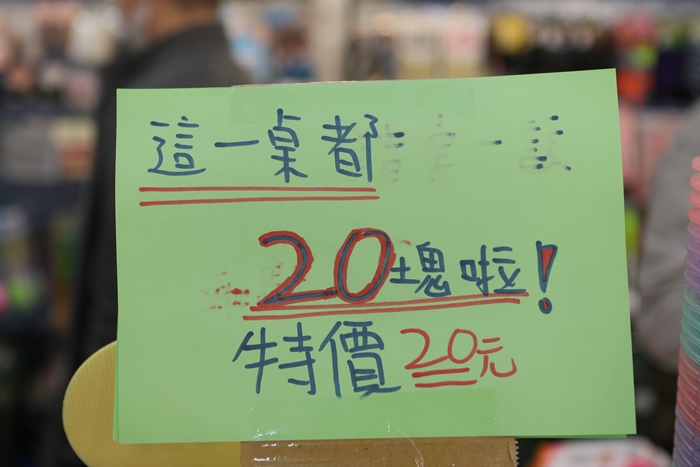 這一桌都
20塊啦!
特價20元